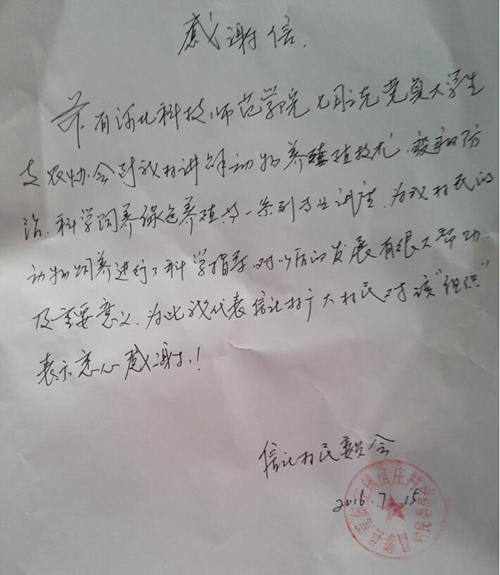 感谢信.
兹有河北科技师范学院大学生
支农协会对我村讲解动物养殖技术、疫病防
治、科学饲养绿色养殖等一系列专业讲座,为我村民的
动物饲养进行了科学指导,对以后的发展有很大帮助
及重要意义.为此我代表信庄村广大村民对该“组织”
表示衷心感谢!
信庄村民委员会
2016.7.15
信庄村